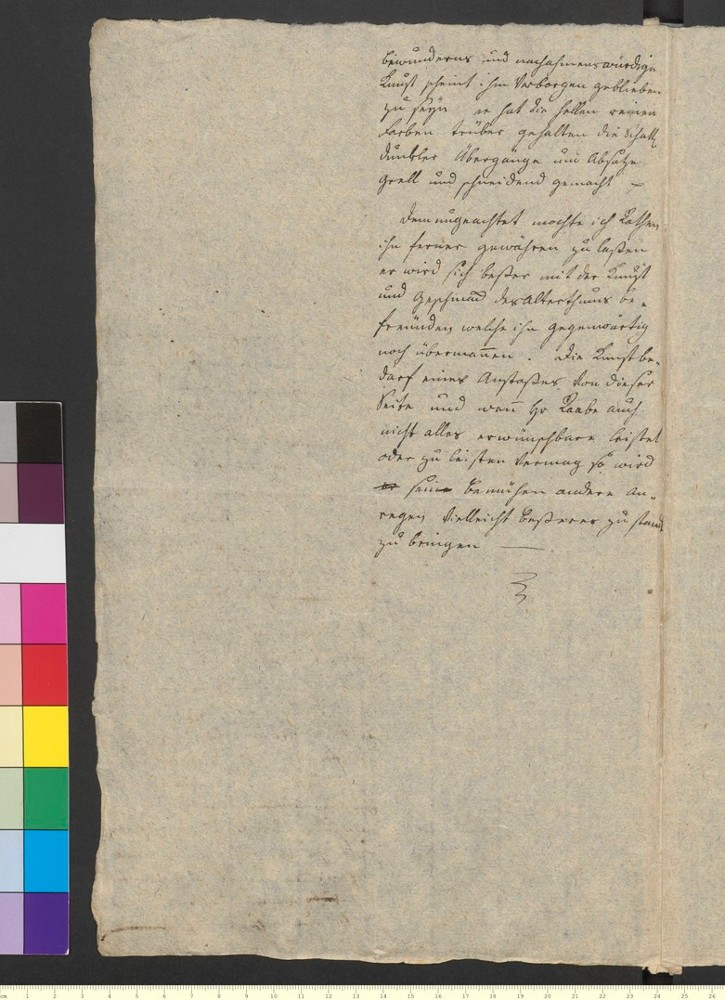 bewunderns und nachahmenswürdige
Kunst scheint ihm Verborgen geblieben
zu seyn er hat die hellen reinen
Farben trüber gehalten die Schatt.
dunkler Übergänge und Absätze
grell und schneidend gemacht –
Demungeachtet möchte ich rathen
ihn ferner gewähren zu laßen
er wird sich beßer mit der Kunst
und Geschmack des Alterthums be-
freunden welche ihn gegenwärtig
noch übermannen. Die Kunst be-
darf eines Anstoßes von dieser
Seite und wenn Hr Raabe auch
nicht alles erwünschbare leistet
oder zu leisten vermag so wird
sein bemühen andere an-
regen Vielleicht beßeres zu stand
zu bringen —